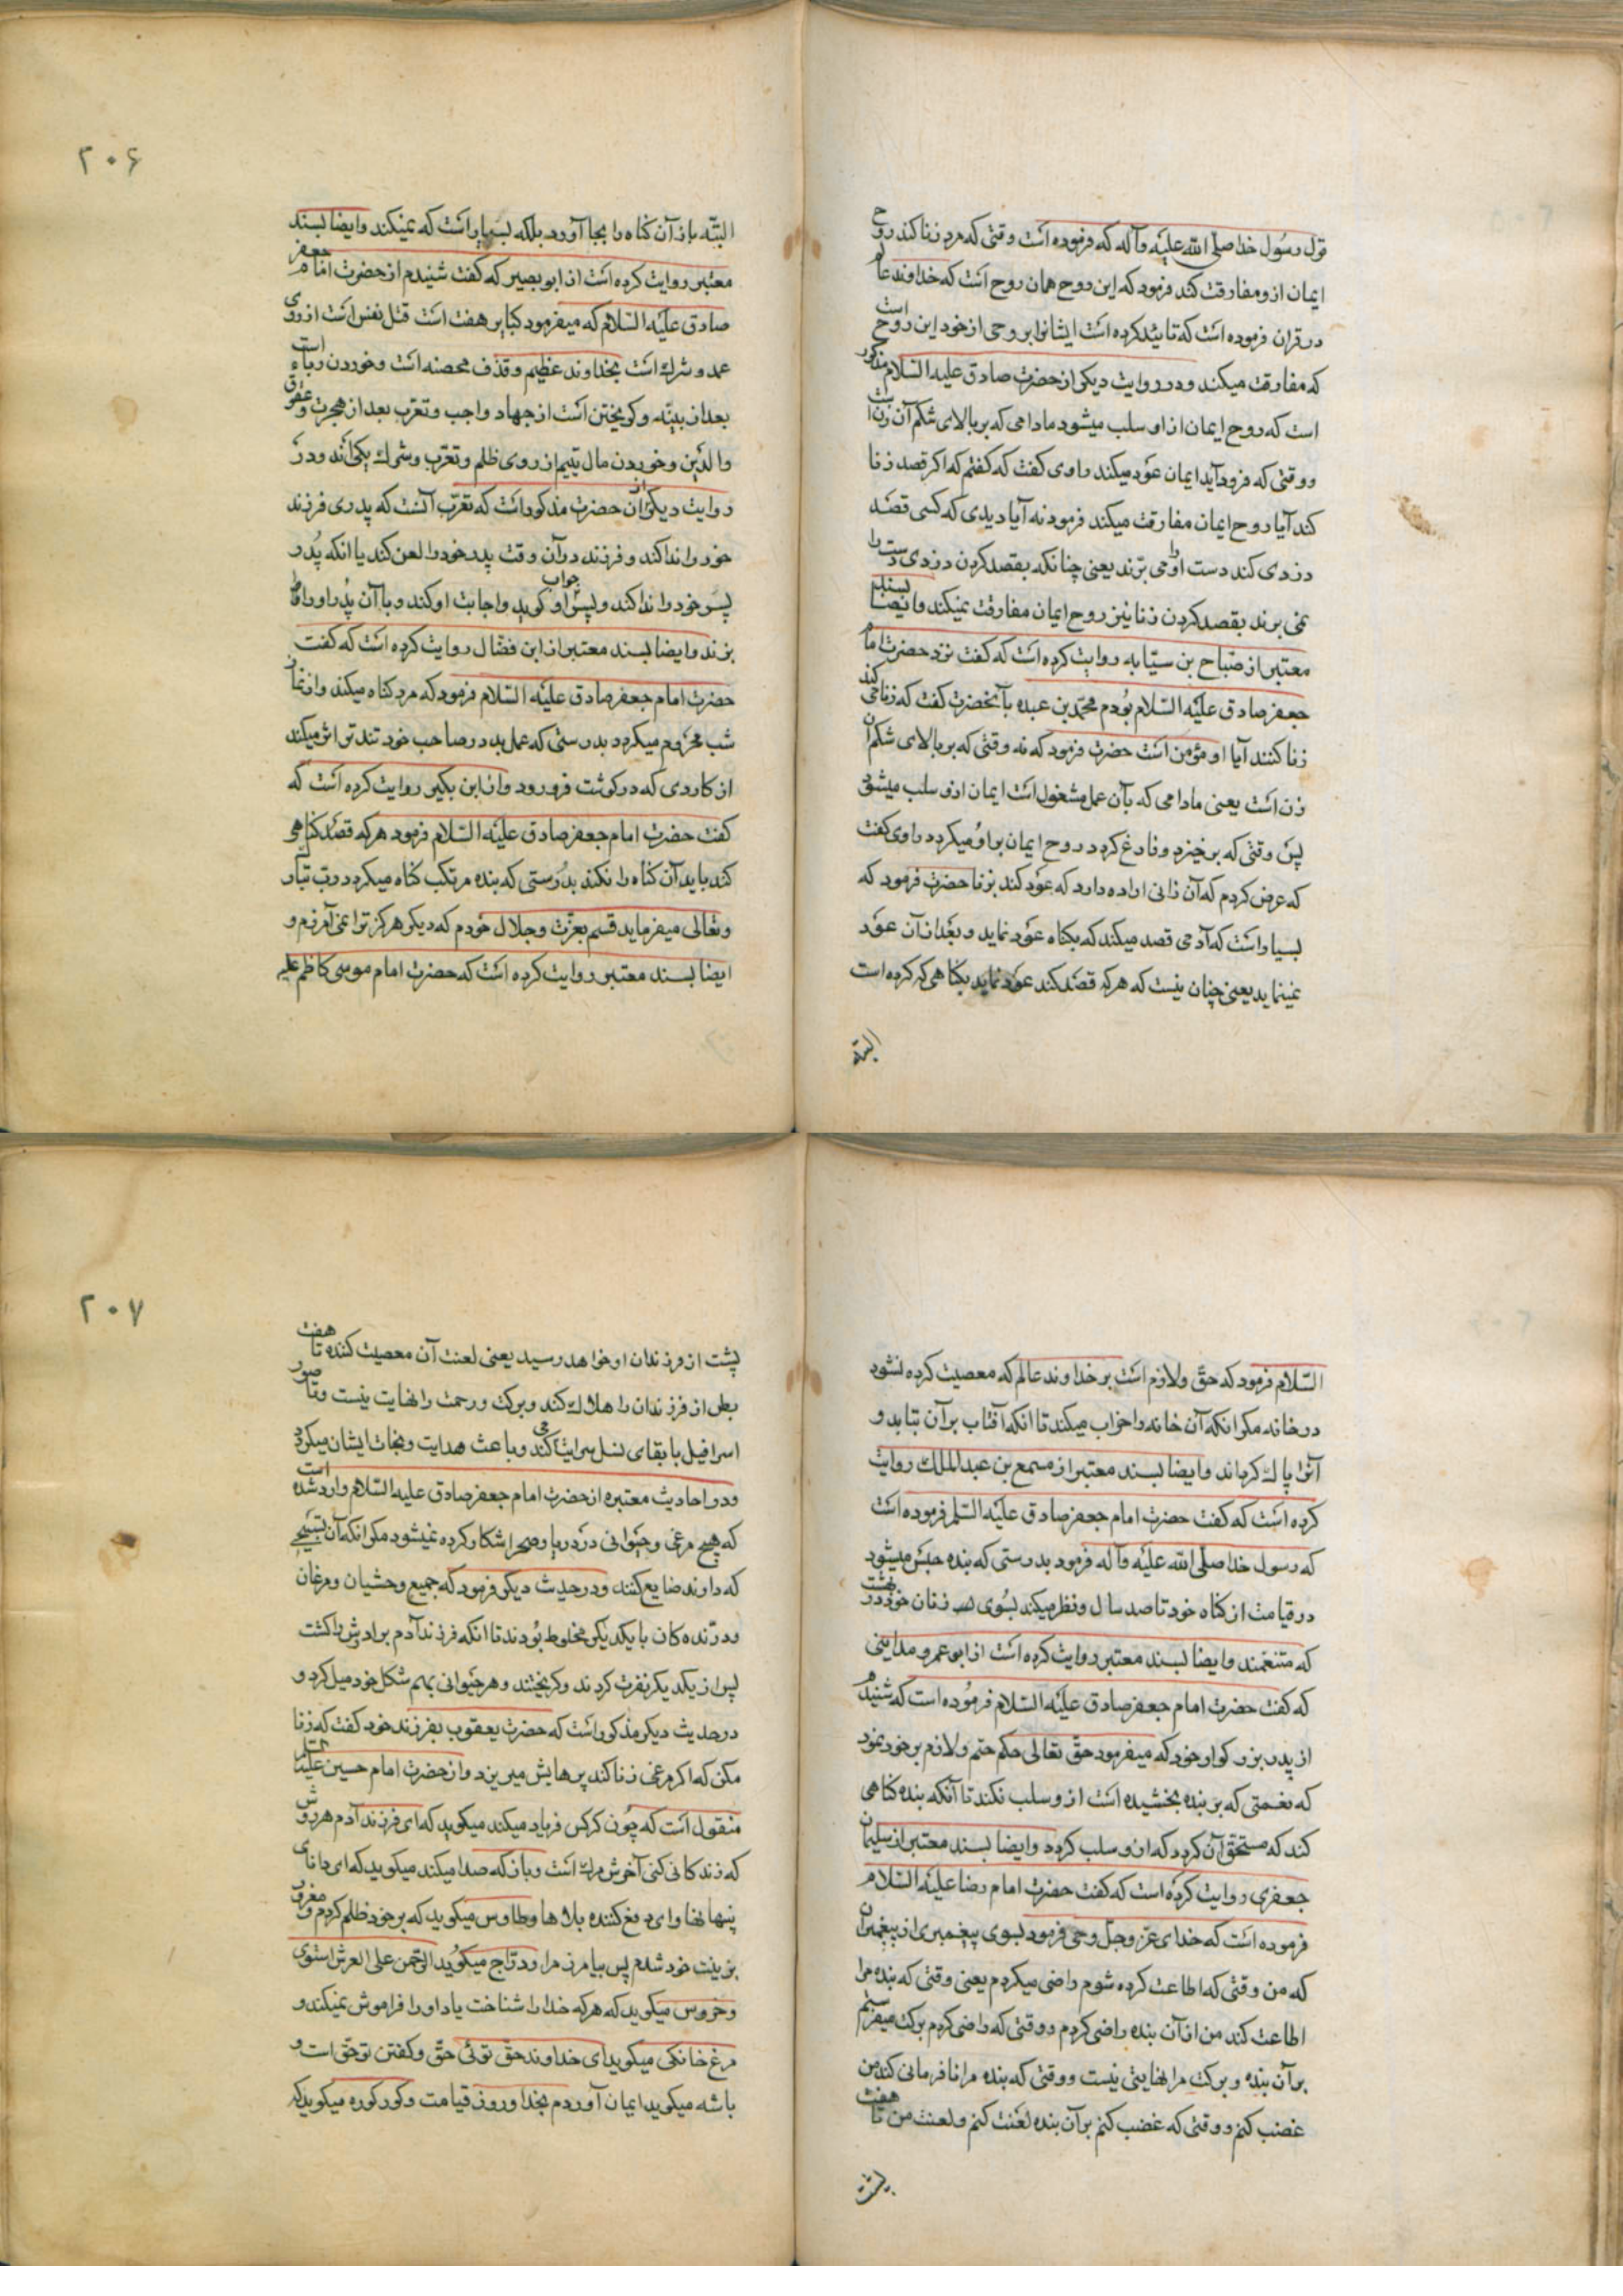 قول رسول خدا صلی الله علیه وآله که فرموده است وقتی که مرد زنا کند روح
ایمان ازو مفارقت کند فرمود که این روح همان روح است که خداوند عالم
در قران فرموده است که تائید کرده است ایشانرا بروحی از خود این روح است
که مفارقت میکند ودر روایت دیکر از حضرت صادق علیه السلام مذکور
است که روح ایمان از او سلب میشود مادامی که بر بالای شکم آن زن است
ووقتی که فرود آید ایمان عود میکند راوی کفت که کفتم که اکر قصد زنا
کند آیا روح ایمان مفارقت میکند فرمود نه آیا دیدی که کسی قصد
دزدی کند دست اورا می برند یعنی چنانکه بقصد کردن دزدی دست را
نمی برند بقصد کردن زنا نیز روح ایمان مفارقت نمیکند وایضا بسند
معتبر از صباح بن سیابه روایت کرده است که کفت نزد حضرت امام
جعفر صادق علیه السلام بودم محمد بن عبده بآنحضرت کفت که زنا می کند
زنا کننده آیا او مؤمن است حضرت فرمود که نه وقتی که بر بالای شکم آن
زن است یعنی مادامی که بآن عمل مشغول است ایمان ازو سلب میشود
پس وقتی که برخیزد وفارغ کردد روح ایمان براو میکردد راوی کفت
که عرض کردم که آن زانی اراده دارد که عود کند بزنا حضرت فرمود که
بسیار است که آدمی قصد میکند که بکناه عود نماید وبعد از آن عود
نمینماید یعنی چنان نیست که هرکه قصد کند عود نماید بکناهی که کرده است
البته
۲۰۶
البته باز آن کناه را بجا آورد بلکه بسیار است که نمیکند وایضا بسند
معتبر روایت کرده است از ابو بصیر که کفت شنیدم از حضرت امام جعفر
صادق علیه السلام که میفرمود کبایر هفت است قتل نفس است از روی
عمد وشرک است بخداوند عظیم وقذف محصنه است وخوردن رباء است
بعد از بینه وکریختن است از جهاد واجب وتعرب بعد از هجرت وعقوق
والدین وخوردن مال یتیم از روی ظلم وتعرب وشرک یکی اند ودر
روایت دیکر از ان حضرت مذکور است که تعرب آنست که پدری فرزند
خود را ندا کند وفرزند در آن وقت پدر خود را لعن کند یا انکه پدر
پسر خود را ندا کند وپسر جواب او کوید واجابت او کند وبا آن پدر اورا
بزند وایضا بسند معتبر از ابن فضال روایت کرده است که کفت
حضرت امام جعفر صادق علیه السلام فرمود که مرد کناه میکند واز نماز
شب محروم میکردد بدرستی که عمل بد در صاحب خود تندتر اثر میکند
از کاردی که در کوشت فرو رود واز ابن بکیر روایت کرده است که
کفت حضرت امام جعفر صادق علیه السلام فرمود هرکه قصد کناهی
کند باید آن کناه را نکند بدرستی که بنده مرتکب کناه میکردد رب تبارک
وتعالی میفرماید قسم بعزت وجلال خودم که دیکر هرکز ترا نمی آمرزم و
ایضا بسند معتبر روایت کرده است که حضرت امام موسی کاظم علیه
السلام فرمود که حق ولازم است بر خداوند عالم که معصیت کرده نشود
در خانه مکر انکه آن خانه را خراب میکند تا انکه آفتاب بر آن بتابد و
آنرا پاک کرداند وایضا بسند معتبر از مسمع بن عبد الملک روایت
کرده است که کفت حضرت امام جعفر صادق علیه السلم فرموده است
که رسول خدا صلی الله علیه وآله فرمود بدرستی که بنده حبس میشود
در قیامت از کناه خود تا صد سال ونظر میکند بسوی زنان خود در بهشت
که متنعمند وایضا بسند معتبر روایت کرده است از ابو عمرو مداینی
که کفت حضرت امام جعفر صادق علیه السلام فرموده است که شنیدم
از پدر بزرکوار خود که میفرمود حق تعالی حکم حتم ولازم بر خود نمود
که نعمتی که بر بنده بخشیده است ازو سلب نکند تا آنکه بنده کناهی
کند که مستحق آن کردد که ازو سلب کردد وایضا بسند معتبر از سلیمان
جعفری روایت کرده است که کفت حضرت امام رضا علیه السلام
فرموده است که خدای عز وجل وحی فرمود بسوی پیغمبری از پیغمبران
که من وقتی که اطاعت کرده شوم راضی میکردم یعنی وقتی که بنده مرا
اطاعت کند من از آن بنده راضی کردم ووقتی که راضی کردم برکت میفرستم
بر آن بنده وبرکت مرا نهایتی نیست ووقتی که بنده مرا نافرمانی کند من
غضب کنم ووقتی که غضب کنم بر آن بنده لعنت کنم ولعنت من تا هفت
پشت
۲۰۷
پشت از فرزندان او خواهد رسید یعنی لعنت آن معصیت کننده تا هفت
بطن از فرزندان را هلاک کند وبرکت ورحمت را نهایت نیست وتا صور
اسرافیل با بقای نسل سرایت می کند وباعث هدایت ونجات ایشان میکردد
ودر احادیث معتبره از حضرت امام جعفر صادق علیه السلام وارد شده است
که هیچ مرغی وحیوانی در دریا وصحرا شکار کرده نمیشود مکر انکه آن تسبیحی
که دارند ضایع کنند ودر حدیث دیکر فرمود که جمیع وحشیان ومرغان
ودرنده کان با یکدیکر مخلوط بودند تا انکه فرزند آدم برادرش را کشت
پس از یکدیکر نفرت کردند وکریختند وهر حیوانی بهم شکل خود میل کرد و
در حدیث دیکر مذکور است که حضرت یعقوب بفرزند خود کفت که زنا
مکن که اکر مرغی زنا کند پرهایش میریزد واز حضرت امام حسین علیه السلام
منقول است که چون کرکس فریاد میکند میکوید که ای فرزند آدم هر روش
که زندکانی کنی آخرش مرک است وباز که صدا میکند میکوید که ای دانای
پنهانها وای دفع کننده بلاها وطاوس میکوید که بر خود ظلم کردم ومغرور
بزینت خود شدم پس بیامرز مرا ودراج میکوید الرحمن علی العرش استوی
وخروس میکوید که هرکه خدا را شناخت یاد اورا فراموش نمیکند و
مرغ خانکی میکوید ای خداوند حق توئی حق وکفتن تو حق است و
باشه میکوید ایمان آوردم بخدا وروز قیامت وکورکوره میکوید که